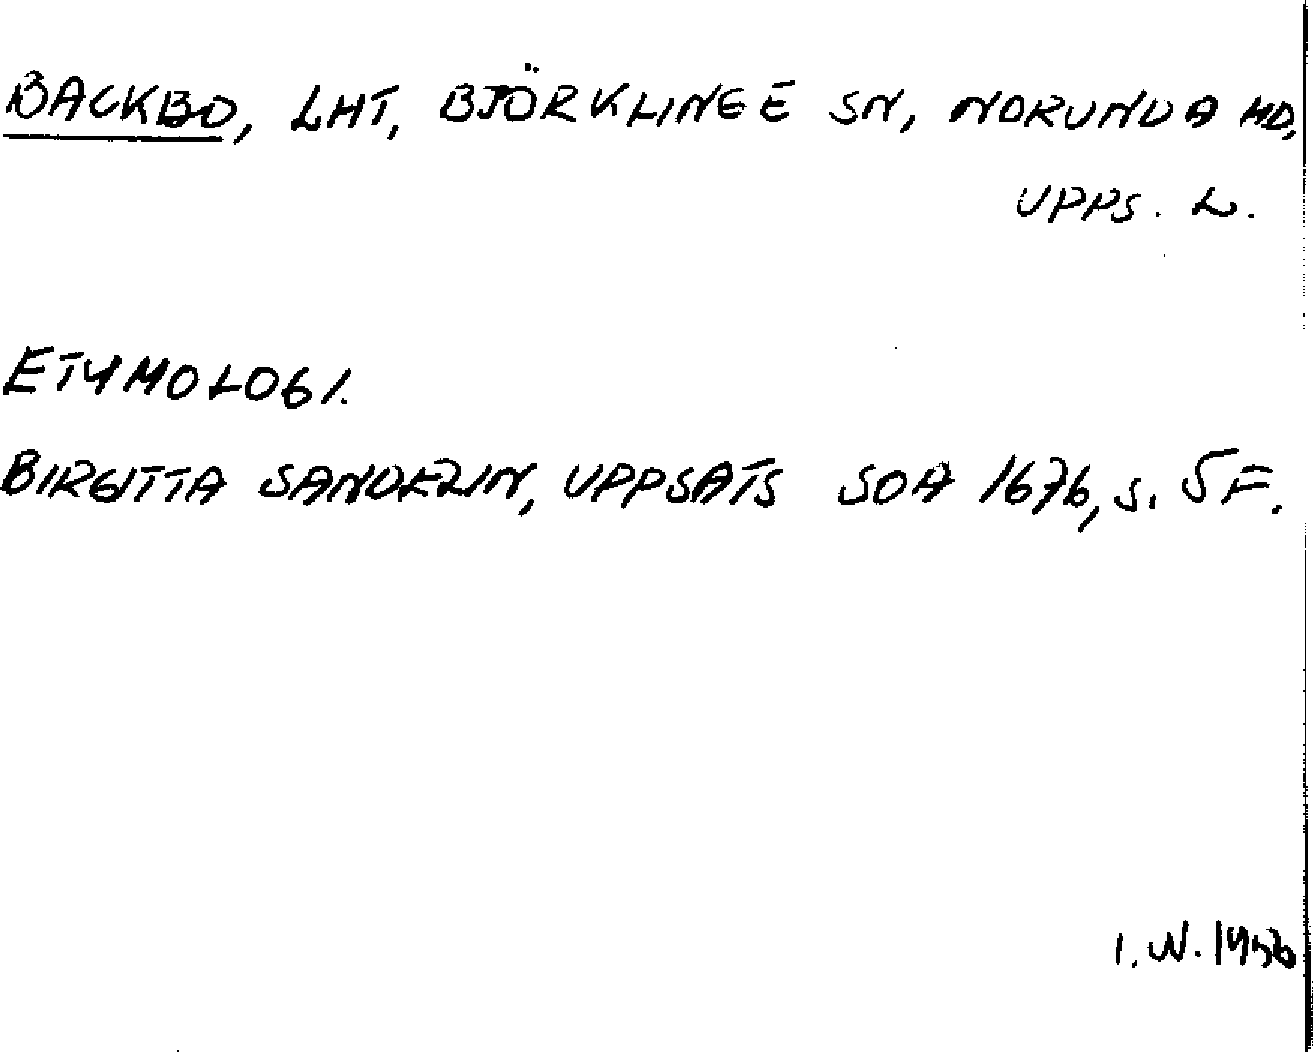 BACKBO, LHT, BJÖRKLINGE SN, NORUNDA HD,
UPPS. L.
ETYMOLOGI.
BIRGITTA SANDELIN, UPPSATS SOA 1676, S. 5 F.
I. W. 1956